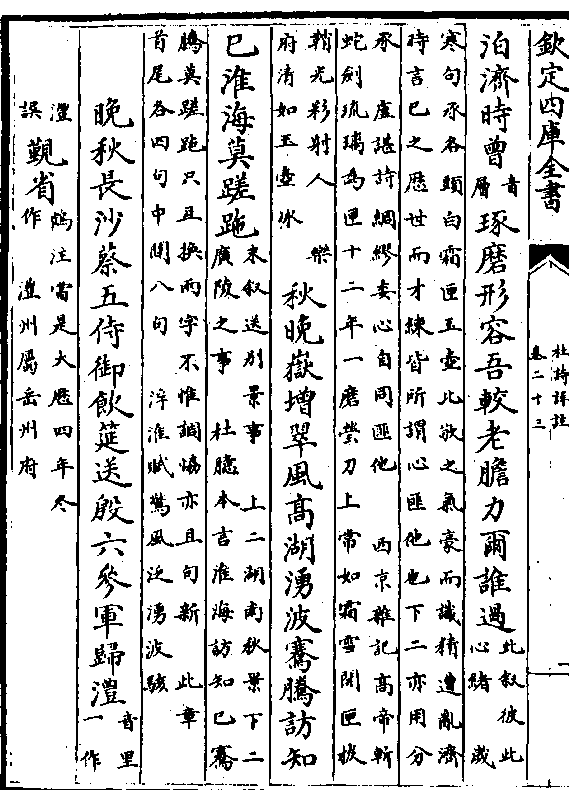 欽定四庫全書
杜詩詳註
卷二十三
二
泊濟時曾音層琢磨形容吾較老膽力爾誰過此叙彼此心緒 歲
寒句承各頭白霜匣玉壺比敬之氣豪而識精遭亂濟
時言巳之歴世而才練皆所謂心匪他也下二亦用分
承 盧諶詩綢繆委心自同匪他 西京雜記髙帝斬
蛇劍琉璃為匣十二年一磨瑩刀上常如霜雪開匣拔
鞘光彩射人 樂
府清如玉壺氷
秋晚嶽增翠風髙湖湧波鶱騰訪知
巳淮海莫蹉跎
末叙送别景事 上二湖南秋景下二
廣陵之事 杜臆本言淮海訪知巳鶱
騰莫蹉跎只且換兩字不惟調愶亦且句新 此章
首尾各四句中間八句 淮賦驚風泛湧波駭
晚秋長沙蔡五侍御飲筵送殷六參軍歸澧音里一作
澧誤覲省
鶴注當是大歴四年冬
作 澧州屬岳州府